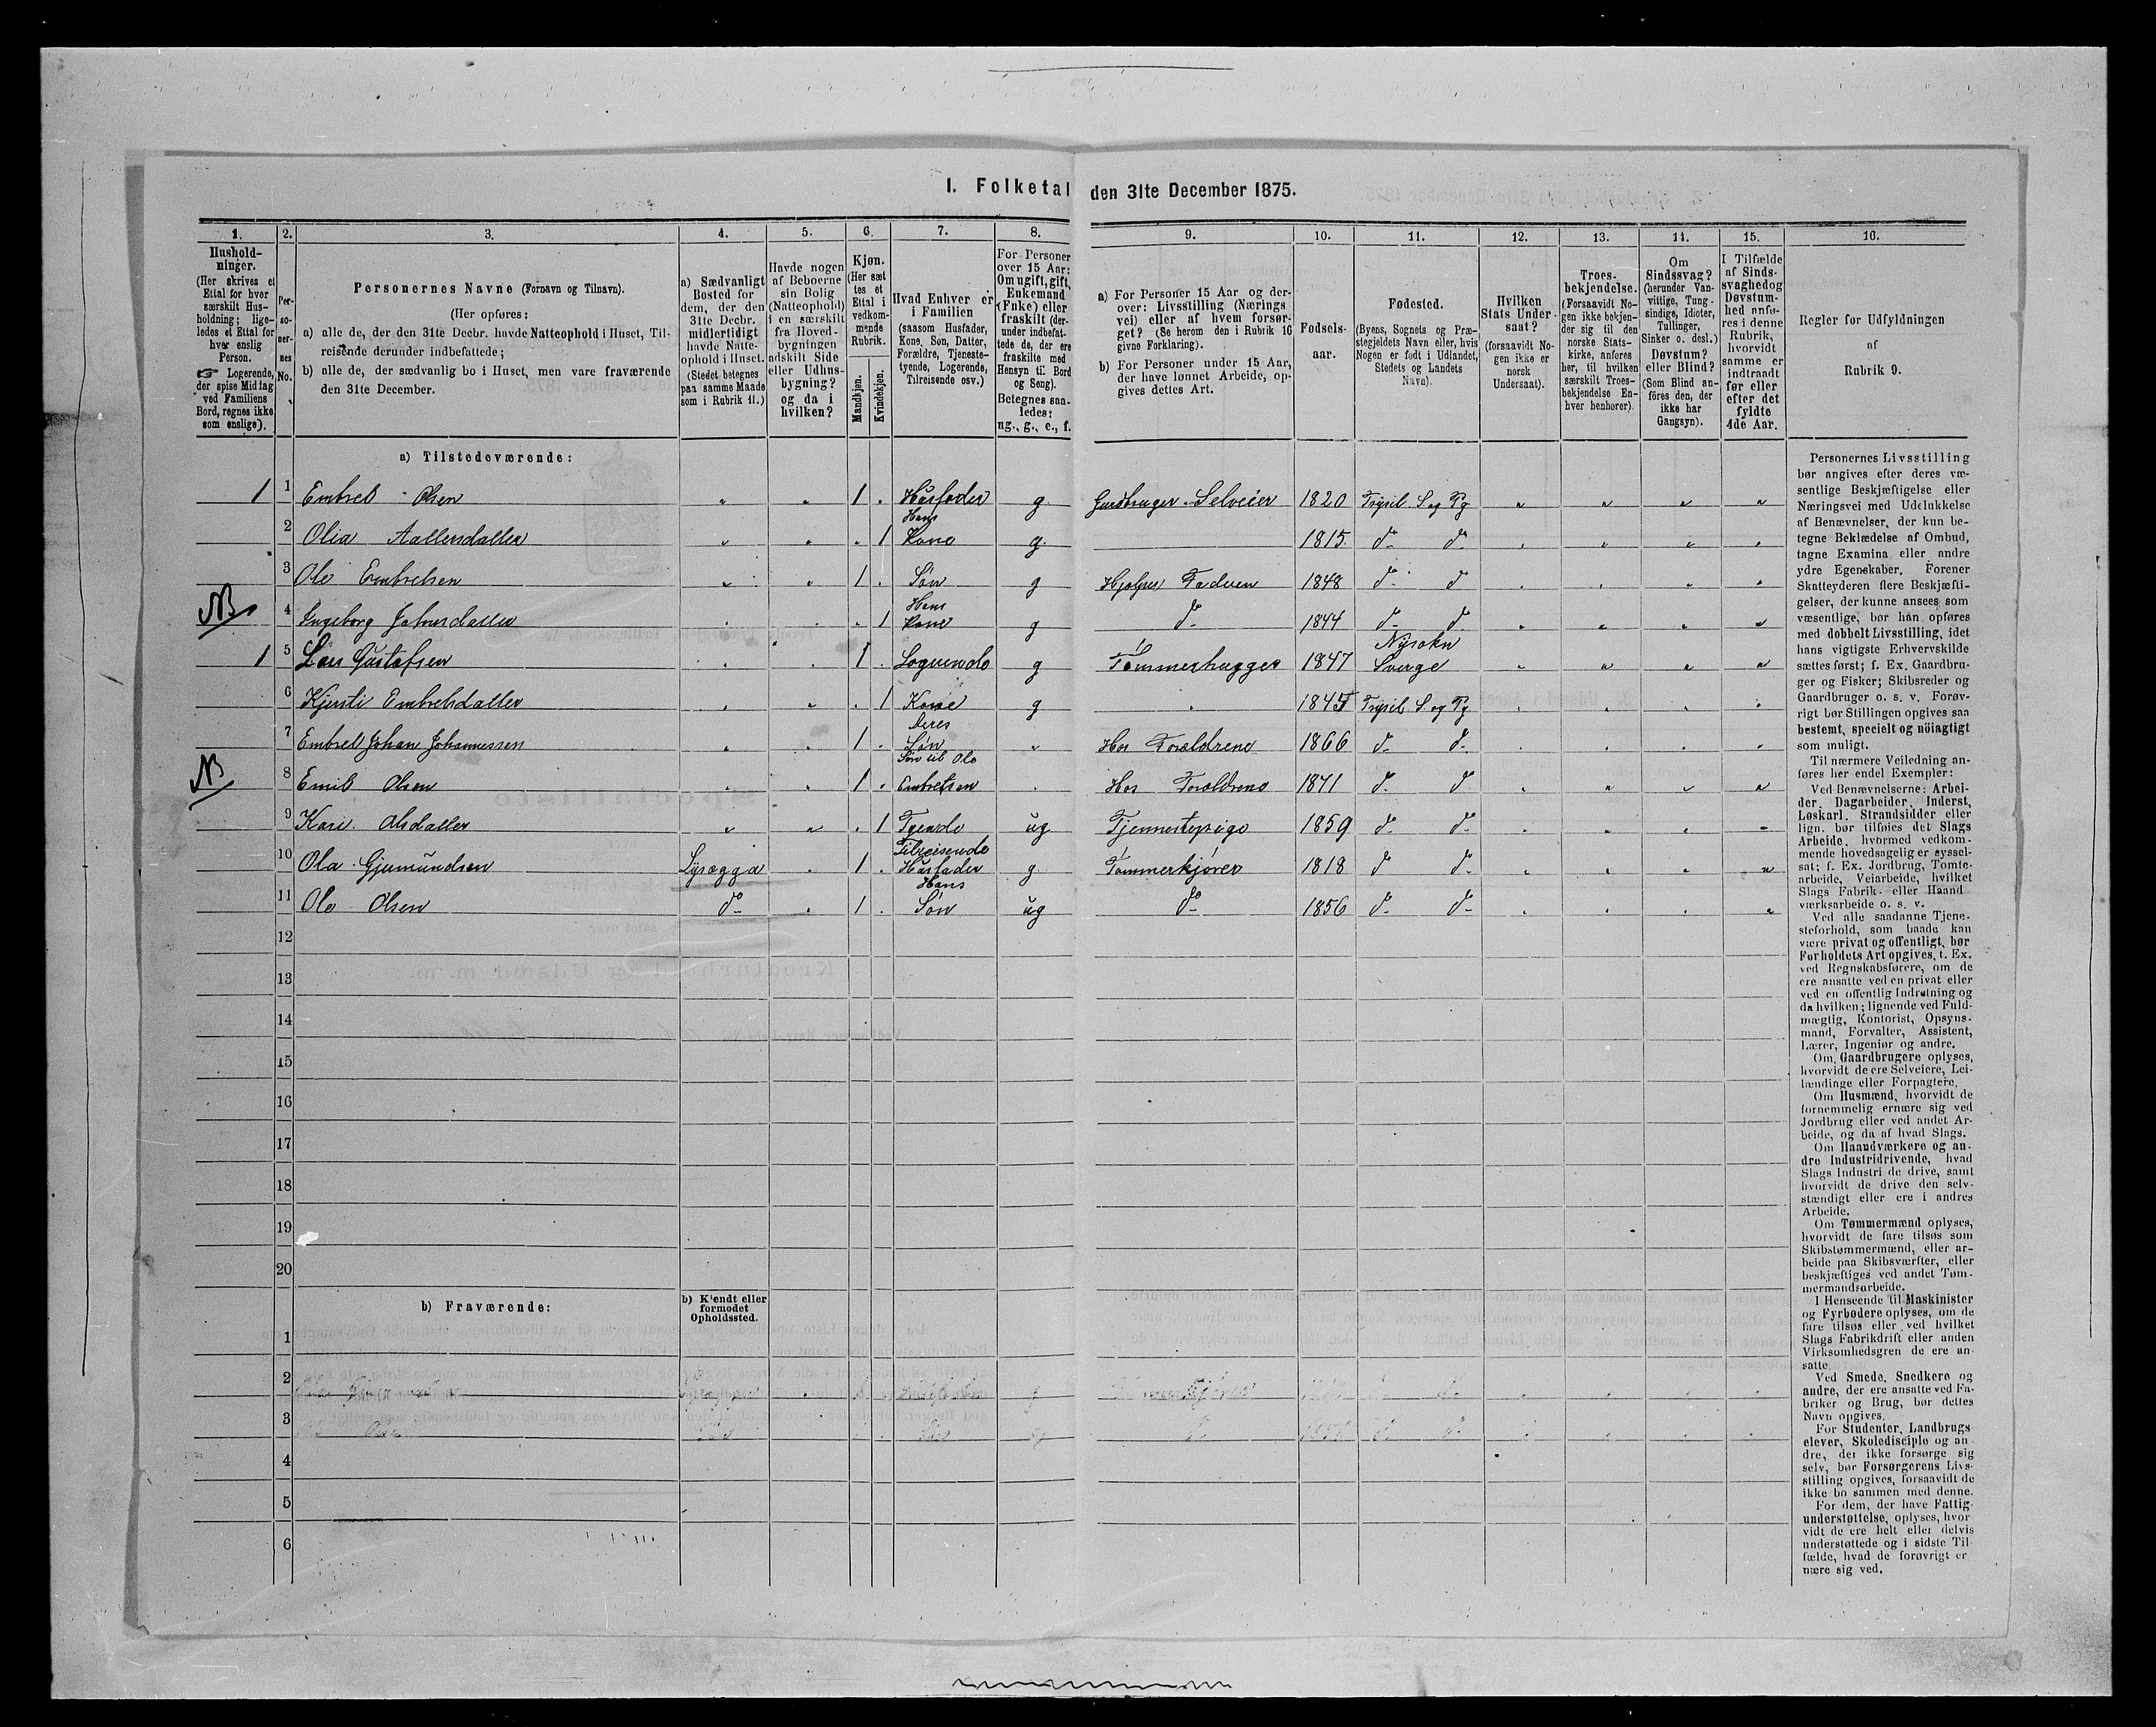 I. Folketal den 31te December 1875.
1. 2. 3. 4. 5. 6. 7. 8. 9. 10. 11. 12. 13. 14. 15. 16.
Hushold-
ninger.
(Her skrives et
Ettal for hver
særskilt Hus-
holdning; lige-
ledes et Ettal for
hver enslig
Person.
☞ Logerende,
der spise Middag
ved Familiens
Bord, regnes ikke
som enslige).
Per-
so-
ner-
nes
No.
Personernes Navne (Fornavn og Tilnavn).
(Her opføres:
a) alle de, der den 31te Decbr. havde Natteophold i Huset, Til-
reisende derunder indbefattede;
b) alle de, der sædvanlig bo i Huset, men vare fraværende
den 31te December.
a) Sædvanligt
Bosted for
dem, der den
31te Decbr.
midlertidigt
havde Natte-
ophold i Huset.
(Stedet betegnes
paa samme Maade
som i Rubrik 11.)
Havde nogen
af Beboerne
sin Bolig
(Natteophold)
i en særskilt
fra Hoved-
bygningen
adskilt Side
eller Udhus-
bygning?
og da i
hvilken?
Kjøn.
(Her sæt-
tes et
Ettal i
vedkom-
mende
Rubrik.
Mandkjøn.
Kvindekjøn.
Hvad Enhver er
i Familien
(saasom Husfader,
Kone, Søn, Datter,
Forældre, Tjeneste-
tyende, Logerende,
Tilreisende osv.)
For Personer
over 15 Aar:
Om ugift, gift,
Enkemand
(Enke) eller
fraskilt (der-
under indbefat-
tede de, der ere
fraskilte med
Hensyn til Bord
og Seng).
Betegnes saa-
ledes:
ug., g., e., f.
a) For Personer 15 Aar og der-
over: Livsstilling (Nærings-
vei) eller af hvem forsør-
get? (Se herom den i Rubrik 16
givne Forklaring).
b) For Personer under 15 Aar,
der have lønnet Arbeide, op-
gives dettes Art.
Fødsels-
aar.
Fødested.
(Byens, Sognets og Præ-
stegjeldets Navn eller, hvis
Nogen er født i Udlandet,
Stedets og Landets
Navn).
Hvilken
Stats Under-
saat?
(forsaavidt No-
gen ikke er
norsk
Undersaat).
Troes-
bekjendelse.
(Forsaavidt No-
gen ikke bekjen-
der sig til den
norske Stats-
kirke, anføres
her, til hvilken
særskilt Troes-
bekjendelse En-
hver henhører).
Om
Sindssvag?
(herunder Van-
vittige, Tung-
sindige, Idioter,
Tullinger,
Sinker o. desl.)
Døvstum?
eller Blind?
(Som Blind an-
føres den, der
ikke har
Gangsyn).
I Tilfælde
af Sinds-
svaghed og
Døvstum-
hed anfø-
res i denne
Rubrik,
hvorvidt
samme er
indtraadt
før eller
efter det
fyldte
4de Aar.
Regler for Udfyldningen
af
Rubrik 9.
a) Tilstedeværende:
1 1 Embret Olsen " " 1 . Husfader g Gardbruger Selveier 1820 Trysil S og Pg " " " "
2 Olia Hans Kone g 1 1815 do do
3 Ole Embretsen " " 1 . Søn g Hjelper Faderen 1848 do do
NB
4 Ingeborg Johnsdatter 1 Hans Kone g do 1844 do do
1 5 Lars Gustafsen 1 g Tømmerhugger 1847 Sverge
6 Kjersti Embretsdatter 1 Kone g 1845 Trysil S og Pg
7 Embret Johan Johannessen 1 Deres Søn Hos Forældrene 1866 do do
NB
8 Emil Olsen 1 Søn til Ole Embretsen Hos Forældrene 1871 do do
9 Kari Olsdatter 1 ug Tjenestepige 1859 do do
10 Ola Gjermundsen Lysægga 1 Tilreisende Husfader g Tømmerkjører 1818 do do
11 Ole Olsen do 1 Hans Søn ug do 1856 do do
12
13
14
15
16
17
18
19
20
b) Fraværende:
b) Kjendt eller
formodet
Opholdssted.
1
2
3
4
5
6
Personernes Livsstilling
bør angives efter deres væ-
sentlige Beskjæftigelse eller
Næringsvei med Udelukkelse
af Benævnelser, der kun be-
tegne Beklædelse af Ombud,
tagne Examina eller andre
ydre Egenskaber. Forener
Skatteyderen flere Beskjæfti-
gelser, der kunne ansees som
væsentlige, bør han opføres
med dobbelt Livsstilling, idet
hans vigtigste Erhvervskilde
sættes først; f. Ex. Gaardbru-
ger og Fisker; Skibsreder og
Gaardbruger o. s. v. Forøv-
rigt bør Stillingen opgives saa
bestemt, specielt og nöiagtigt
som muligt.
Til nærmere Veiledning an-
føres her endel Exempler:
Ved Benævnelserne: Arbei-
der, Dagarbeider, Inderst,
Løskarl, Strandsidder eller
lign. bør tilføies det Slags
Arbeide, hvormed vedkom-
mende hovedsagelig er syssel-
sat; f. Ex. Jordbrug, Tomte-
arbeide, Veiarbeide, hvilket
Slags Fabrik- eller Haand-
værksarbeide o. s. v.
Ved alle saadanne Tjene-
steforhold, som baade kan
være privat og offentligt, bør
Forholdets Art opgives, t. Ex.
ved Regnskabsførere, om de
ere ansatte ved en privat eller
ved en offentlig Indretning og
da hvilken; lignende ved Fuld-
mægtig, Kontorist, Opsyns-
mand, Forvalter, Assistent,
Lærer, Ingeniør og andre.
Om Gaardbrugere oplyses,
hvorvidt de ere Selveiere, Lei-
lændinge eller Forpagtere.
Om Husmænd, hvorvidt de
fornemmelig ernære sig ved
Jordbrug eller ved andet Ar-
beide, og da af hvad Slags.
Om Haandværkere og an-
dre Industridrivende, hvad
Slags Industri de drive, samt
hvorvidt de drive den selv-
stændigt eller ere i andres
Arbeide.
Om Tømmermænd oplyses,
hvorvidt de fare tilsøs som
Skibstømmermænd, eller ar-
beide paa Skibsværfter, eller
beskjæftiges ved andet Tøm-
mermandsarbeide.
I Henseende til Maskinister
og Fyrbødere oplyses, om de
fare tilsøs eller ved hvilket
Slags Fabrikdrift eller anden
Virksomhedsgren de ere an-
satte
Ved Smede, Snedkere og
andre, der ere ansatte ved Fa-
briker og Brug, bør dettes
Navn opgives.
For Studenter, Landbrugs-
elever, Skoledisciple og an-
dre, der ikke forsørge sig
selv, bør Forsørgerens Livs-
stilling opgives, forsaavidt de
ikke bo sammen med denne.
For dem, der have Fattig-
understøttelse, oplyses, hvor-
vidt de ere helt eller delvis
understøttede og i sidste Til-
fælde, hvad de forøvrigt er-
nære sig ved.